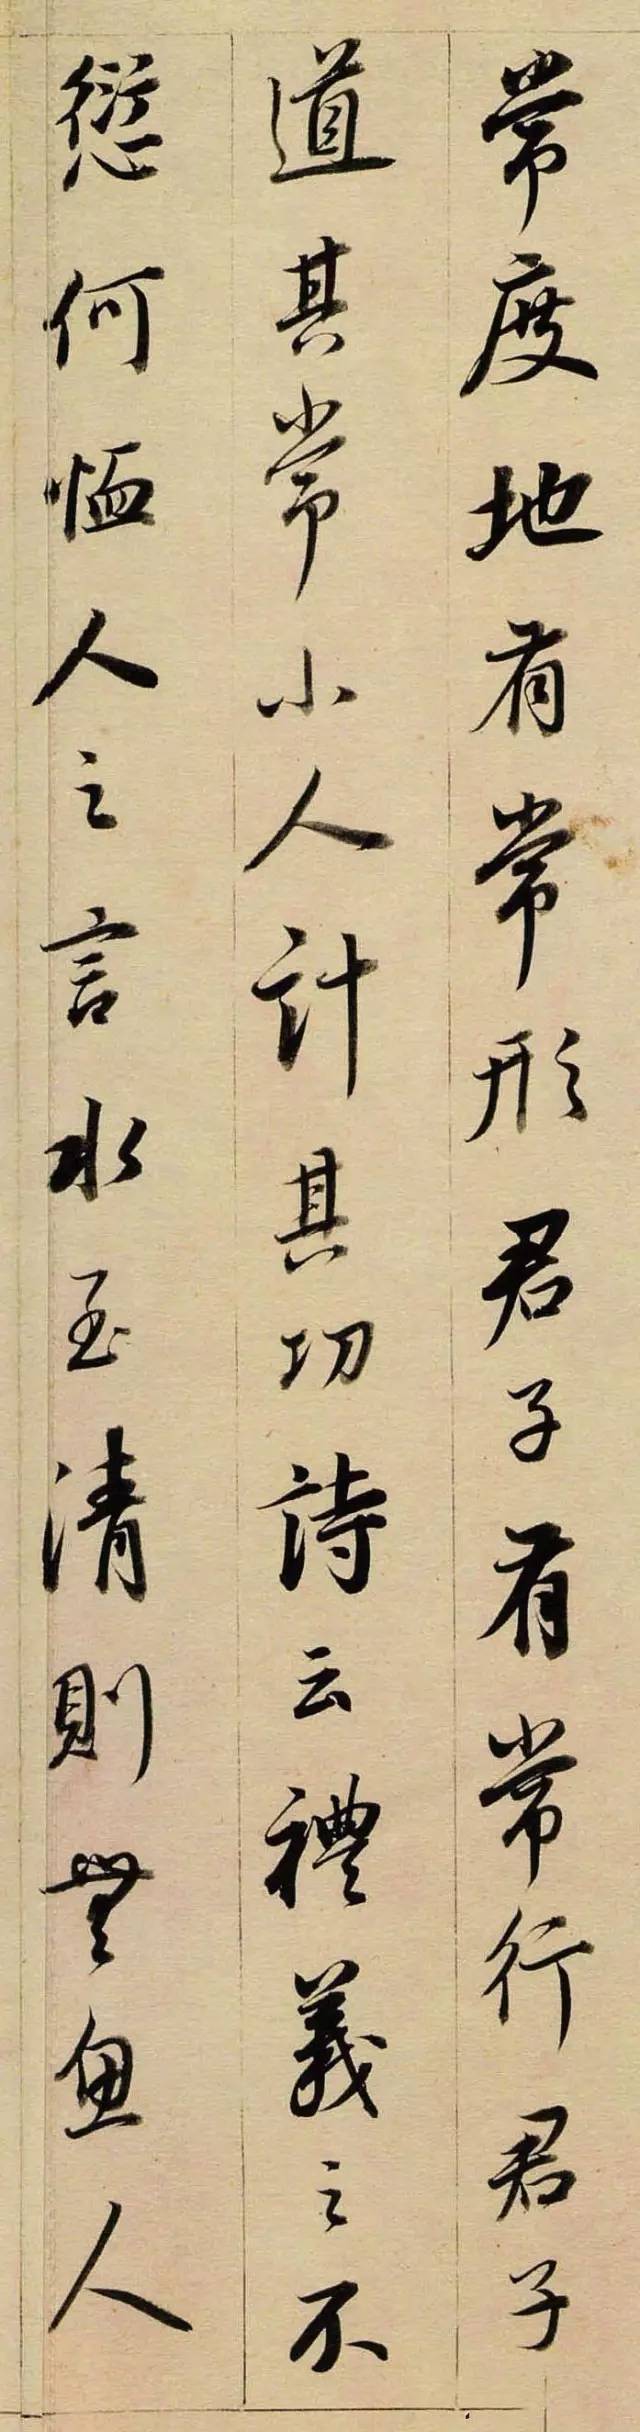 常度地有常形君子有常行君子
道其常小人計其功詩云禮義之不
愆何恤人之言水至清則無魚人